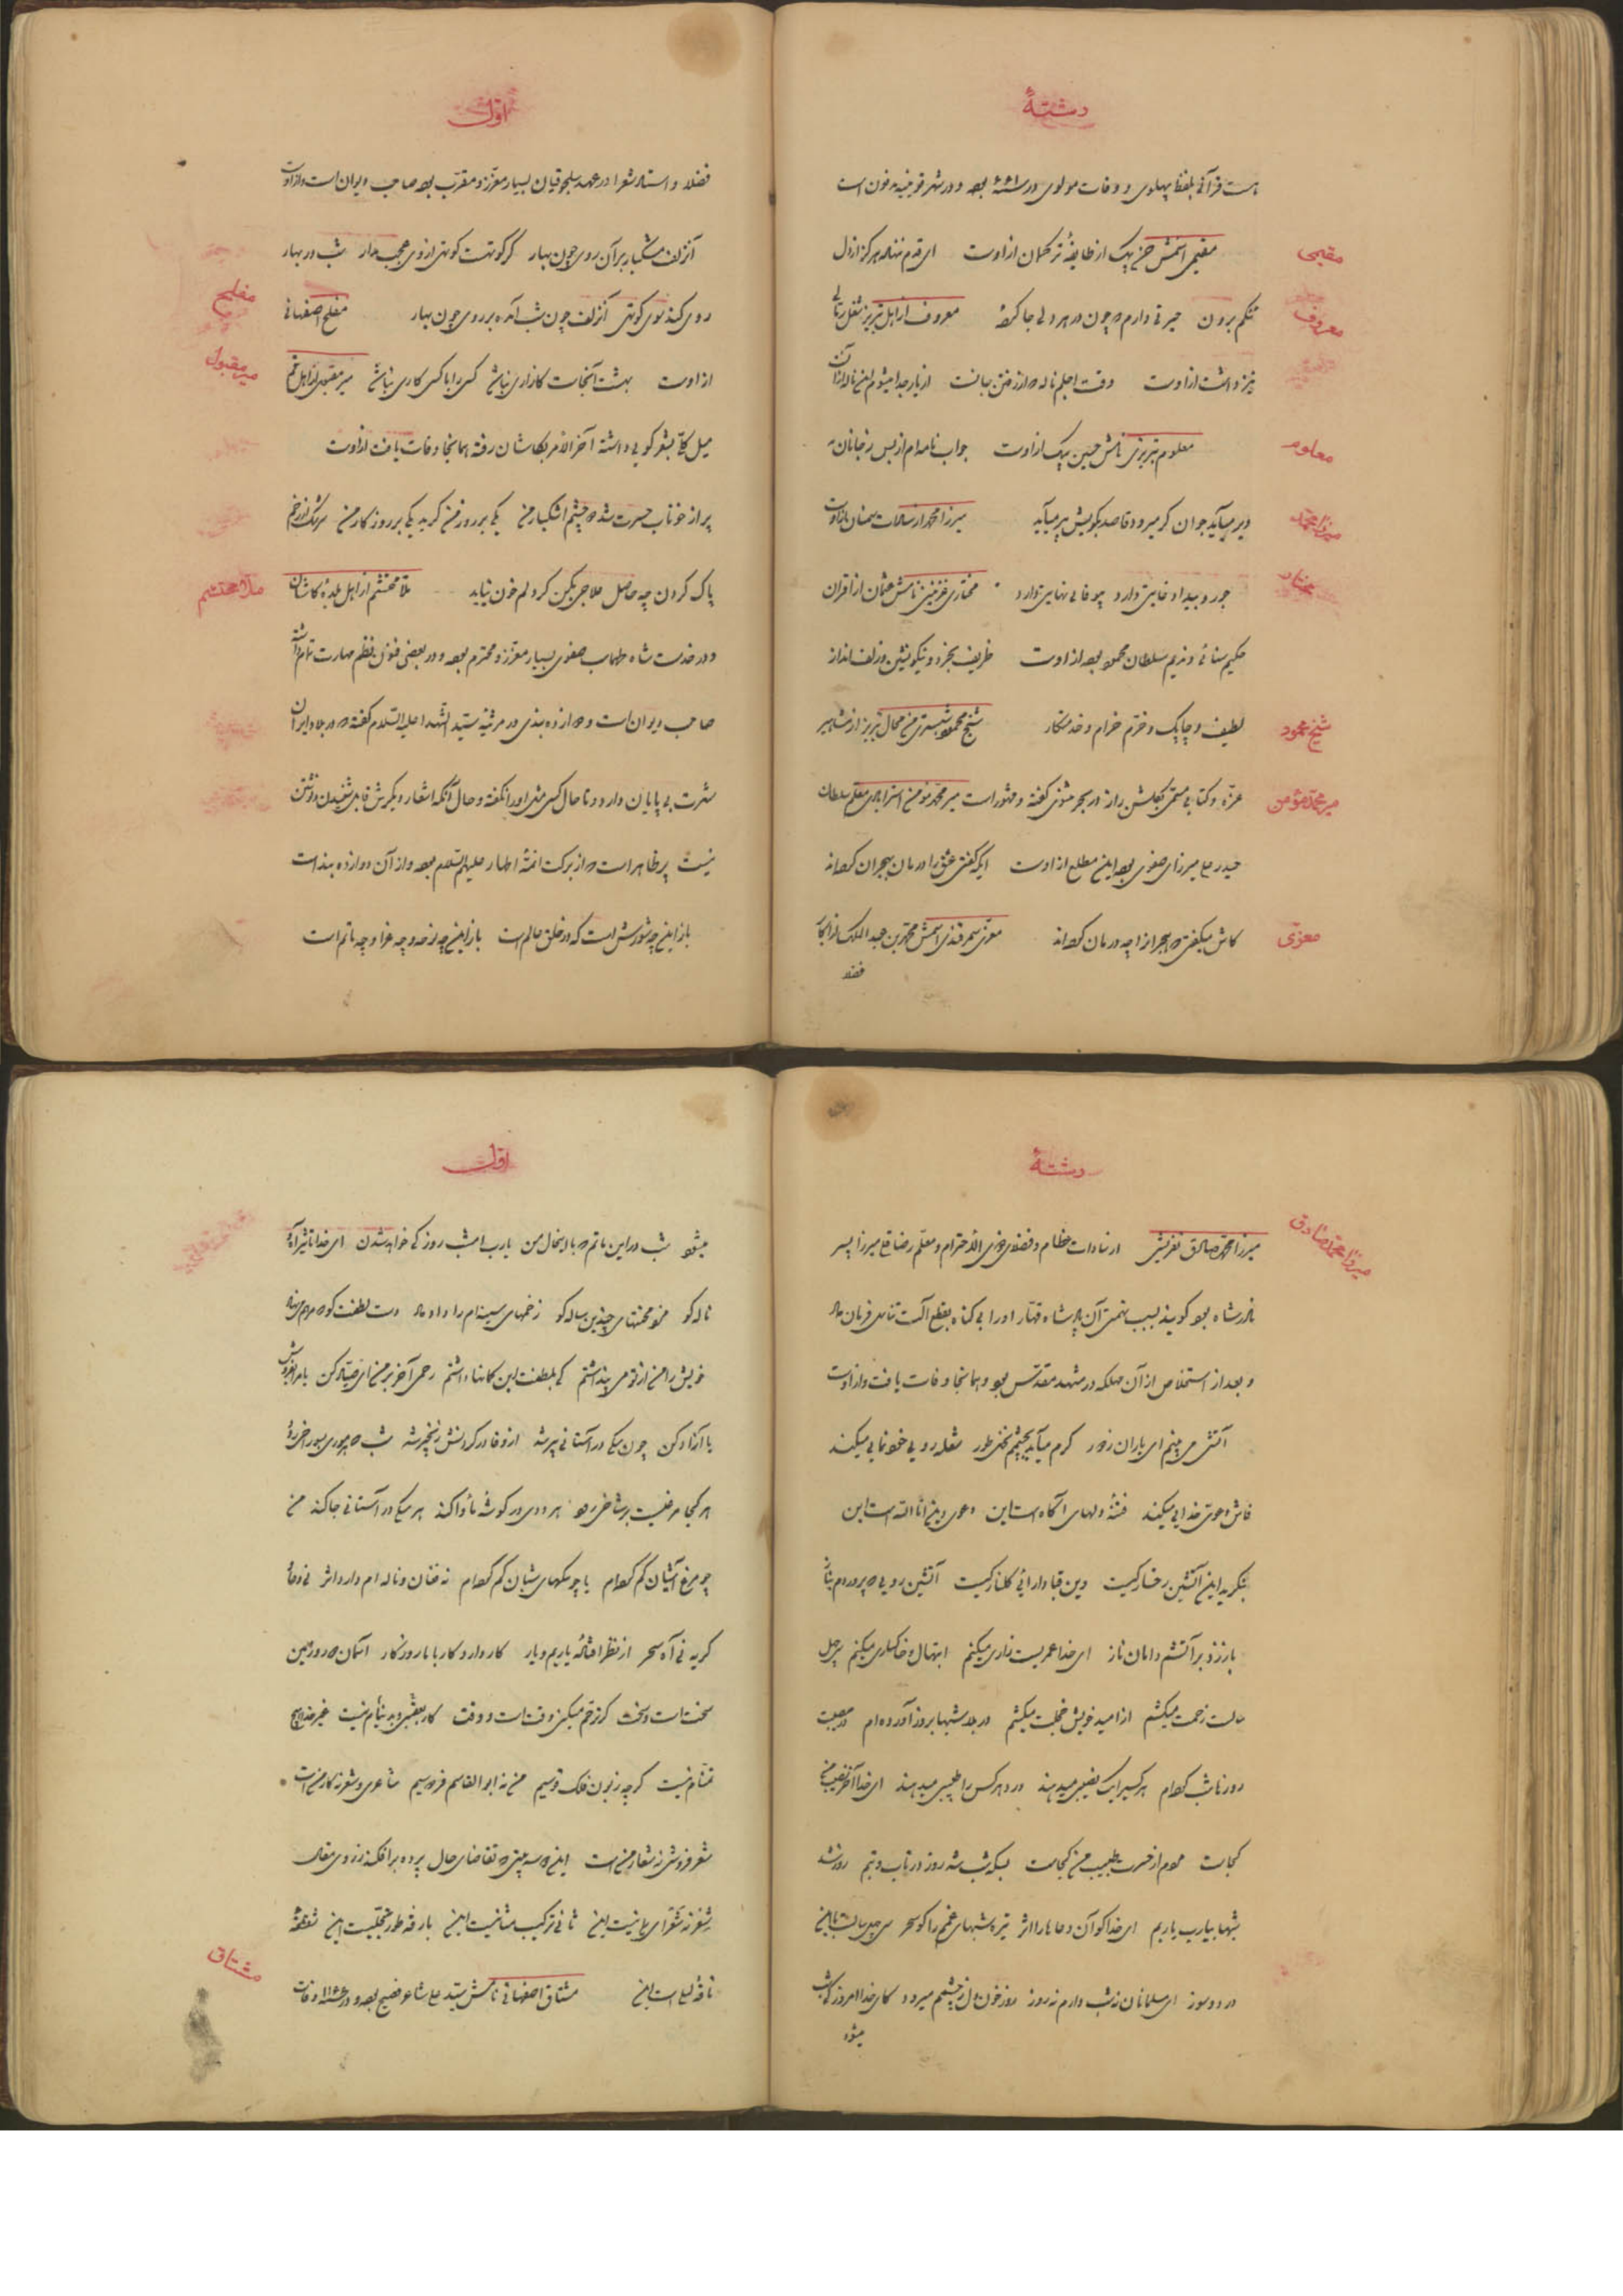 رشتهٔ
هست قرآنی بلفظ پهلوی و وفات مولوی در سنه ۶۶۱ بوده و در شهر قونیه مدفون است
مقیمی
مقیمی اسمش حسن بیک از طایفهٔ ترکمان از اوست ای قدم ننهاده هرگز از دل
معروف
تنگم برون حیرتی دارم که چون در هر دلی جا کردهٔ معروف از اهل تبریز شغل رمالی
نیز داشت از اوست وقت اجلم ناله نه از رفتن جانست از یار جدا میشوم این ناله از آن
معلوم
معلوم تبریزی نامش حسین بیک از اوست جواب نامه‌ام از بس ز جانان
میرزا محمد
دیر میآید جوان گر میرود قاصد بکویش پیر میآید میرزا محمد از سادات سمنان از اوست
مختار
جور و بیداد غایتی دارد بیوفائی نهایتی دارد مختاری غزنینی نامش عثمان از اقران
حکیم سنائی و ندیم سلطان محمود بوده از اوست ظریف بگذر و نیکو نشین و زلف انداز
شیخ محمود
لطیف و چابک و خرم خرام و خدمتکار شیخ محمود شبستری من محال تبریز از مشاهیر
میر محمد مؤمن
عرفا و کتابی مسمی بگلشن راز در بحر مثنوی گفته و مشهور است میر محمد مؤمن استرابادی معلم سلطان
حیدر علی میرزای صفوی بوده این مطلع از اوست ایکه گفتی عشق را درمان بهجران کرده‌اند
معزی
کاش میگفتی که هجر از چه درمان کرده‌اند معزی سمرقندی اسمش محمد بن عبد الملک از اکابر
فضلا
اول
فضلا و استاد شعرا در عهد سلجوقیان بسیار معزز و مقرب بوده صاحب دیوان است و از اوست
آن زلف مشکبار بر آن روی چون بهار گر کوتهست کوتهی از وی عجب مدار شب در بهار
مفلح
روی کند سوی کوتهی آن زلف چون شب آمد بر روی چون بهار مفلح اصفهانی
میر مقبول
از اوست بهشت آنجاست کازاری نباشد کسی را با کسی کاری نباشد میر مقبول از اهل قم
میل کلی بشعر گویی داشته آخر الامر بکاشان رفته همانجا وفات یافت از اوست
پر از خوناب حسرت شد چشم اشکبار من یکی بر روز من گرید یکی بر روزگار من سرشک از رخم
ملا محتشم
پاک کردن چه حاصل علاجی بکن کز دلم خون نیاید ملا محتشم از اهل بلده کاشان
و در خدمت شاه طهماسب صفوی بسیار معزز و محترم بوده و در بعضی فنون نظم مهارت تمام داشته
صاحب دیوان است و دوازده بندی در مرثیه سید الشهدا علیه السلام گفته که در بلاد ایران
شهرت بی پایان دارد و تا حال کسی مثل او را نگفته و حال آنکه اشعار دیگرش قابل شنیدن و نوشتن
نیست پر ظاهر است که از برکت ائمهٔ اطهار علیهم السلام بوده و از آن دوازده بند است
باز این چه شورش است که در خلق عالم است باز این چه نوحه و چه عزا و چه ماتم است
رشتهٔ
میرزا محمد صادق
میرزا محمد صادق تفرشی از سادات عظام و فضلای ذوی الاحترام و معلم رضا قلی میرزا پسر
نادر شاه بود گویند بسبب تهمتی آن پادشاه قهار او را بی گناه بقطع آلت تناسل فرمان داد
و بعد از استخلاص از آن مهلکه در مشهد مقدس بود و همانجا وفات یافت و از اوست
آتشی می بینم ای یاران ز دور گرم میآید بچشمم نخل طور شعله رویی خودنمایی میکند
فاش دعوی خدایی میکند فتنهٔ دلهای آگاه است این دعوی انی انا الله است این
بنگرید این آتشین رخسار کیست وین قبا دارائی گلنار کیست آتشین رویی که پروردم بناز
باز زد بر آتشم دامان ناز ای خدا عمریست زاری میکنم ابتهال و خاکساری میکنم چل
سالست زحمت میکشم از امید خویش خجلت میکشم در بلا شبها بروز آورده‌ام در مصیبت
روزها شب کرده‌ام هر کسیرا یک نصیبی میدهند درد هر کس را طبیبی میدهند ای خدا آخر نصیب من
کجاست مردم از حسرت طبیب من کجاست بیکه شب شد روز در تاب و تبم روز شد
شبها بیا رب یاربم ای خدا کو آن دعاها را اثر تیره شبهای غمم را کو سحر
درد و سوز ای مسلمانان نه شب دارم نه روز روز خون دل ز چشمم میرود کای خدا امروز کی شب
میشود
اول
میشود شب در این ماتم که با این حال من یا رب امشب روز کی خواهد شدن ای خدا تأثیر آه و
ناله کو مزد محنتهای چندین ساله کو زخمهای سینه‌ام را داده‌اند دست لطفت کو که مرهم می نهد
خویش را من از تو می پنداشتم کی بلطفت این گمانها داشتم رحمی آخر بر من ای صیاد کن یا مرا بفروش
یا آزاد کن چون سگی در آستانی پیر شد از وفا در گردنش زنجیر شد
هر کجا مرغیست بر شاخی رود هر ددی در گوشهٔ مأوا کند هر سگی در آستانی جا کند من
چو مرغ آشیان گم کرده‌ام یا چو سگهای شبان گم کرده‌ام نه فغان و ناله‌ام دارد اثر نی دعا و
گریه نی آه سحر از نظر افتادهٔ یاریم و یار کار دارد کار با ما روزگار آسمان دور و زمین
سخت است سخت گر ترحم میکنی وقت است وقت کار بعقبی و بدنیایم نیست غیر خدا هیچ
تمنایم نیست گرچه زبون فلک قوسیم من نه ابو القاسم فردوسیم شاعری و شعر نه کار من است
شعر فروشی نه شعار من است این دو سه بیتی که تقاضای حال پرده برافکند ز روی مقال
شعر نه شعرای یمانیست این ثانی ترکیب مثانیست این بارقه طور تجلیست این شعشعهٔ
مشتاق
ناقهٔ لیلی است این مشتاق اصفهانی نامش سید علی شاعر فصیح بوده و در سنه وفات